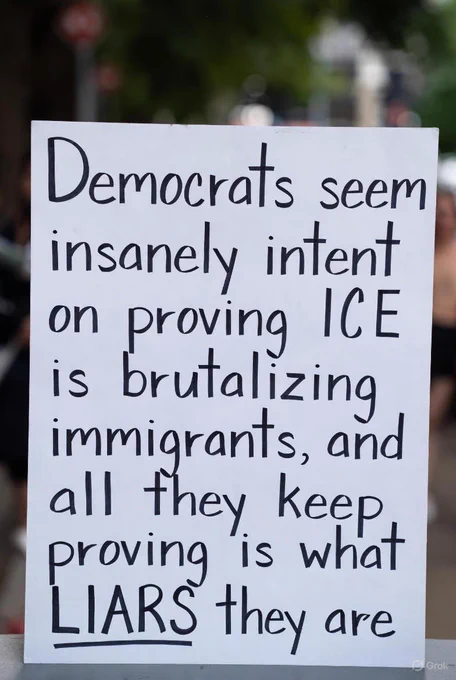 Democrats seem
insanely intent
on proving ICE
is brutalizing
immigrants, and
all they keep
proving is what
LIARS they are
Grok